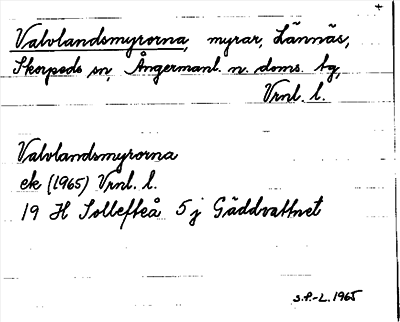 +
Valvlandsmyrorna, myrar, Lännäs,
Skorpeds sn, Ångermanl. n. doms. bg,
Vrnl. l.
Valvlandsmyrorna
ek (1965) Vrnl. l.
19 H Sollefteå 5 j Gäddvattnet
S.P.-L. 1965